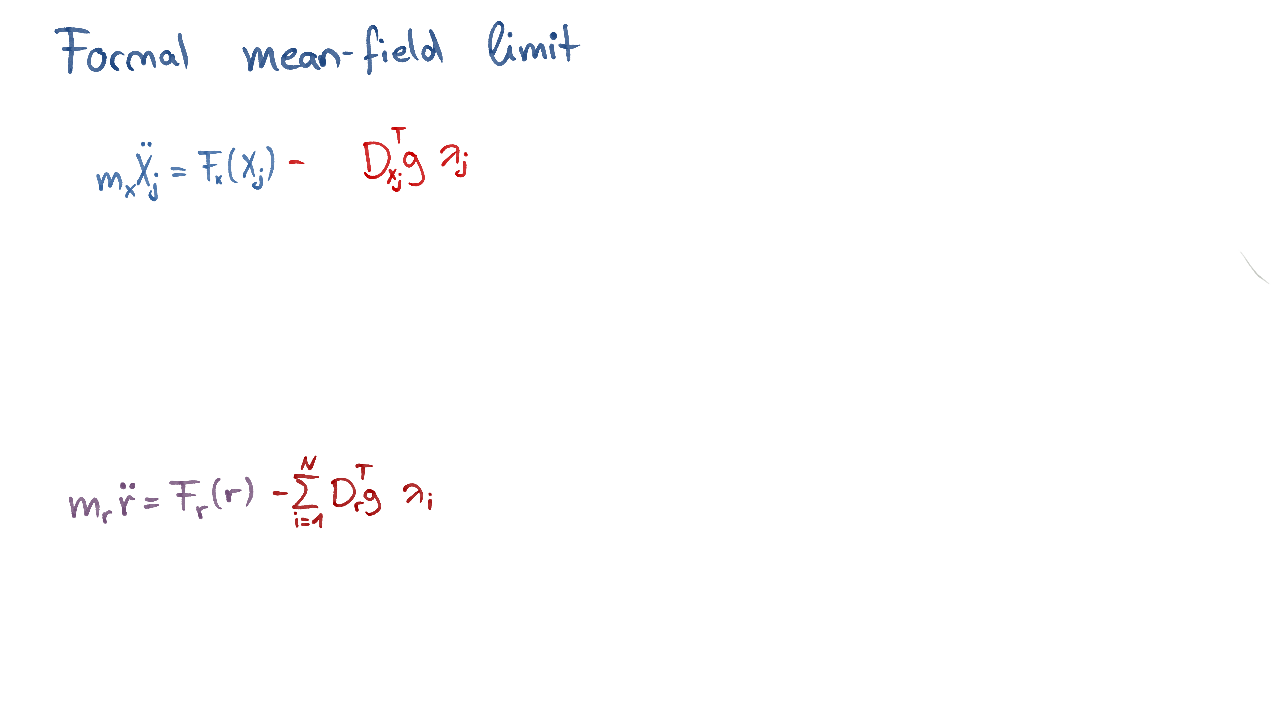 Formal mean-field limit
mₓẌⱼ = Fₓ(Xⱼ) - D_{xⱼ}^T g λⱼ
mᵣ r̈ = Fᵣ(r) - ∑_{i=1}^{N} Dᵣ^T g λᵢ